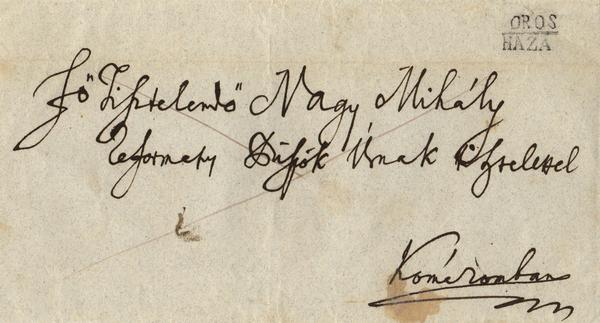 OROS
HÁZA
Fő Tisztelendő Nagy Mihály
Reformatus Püspök Úrnak tisztelettel
Komáromban